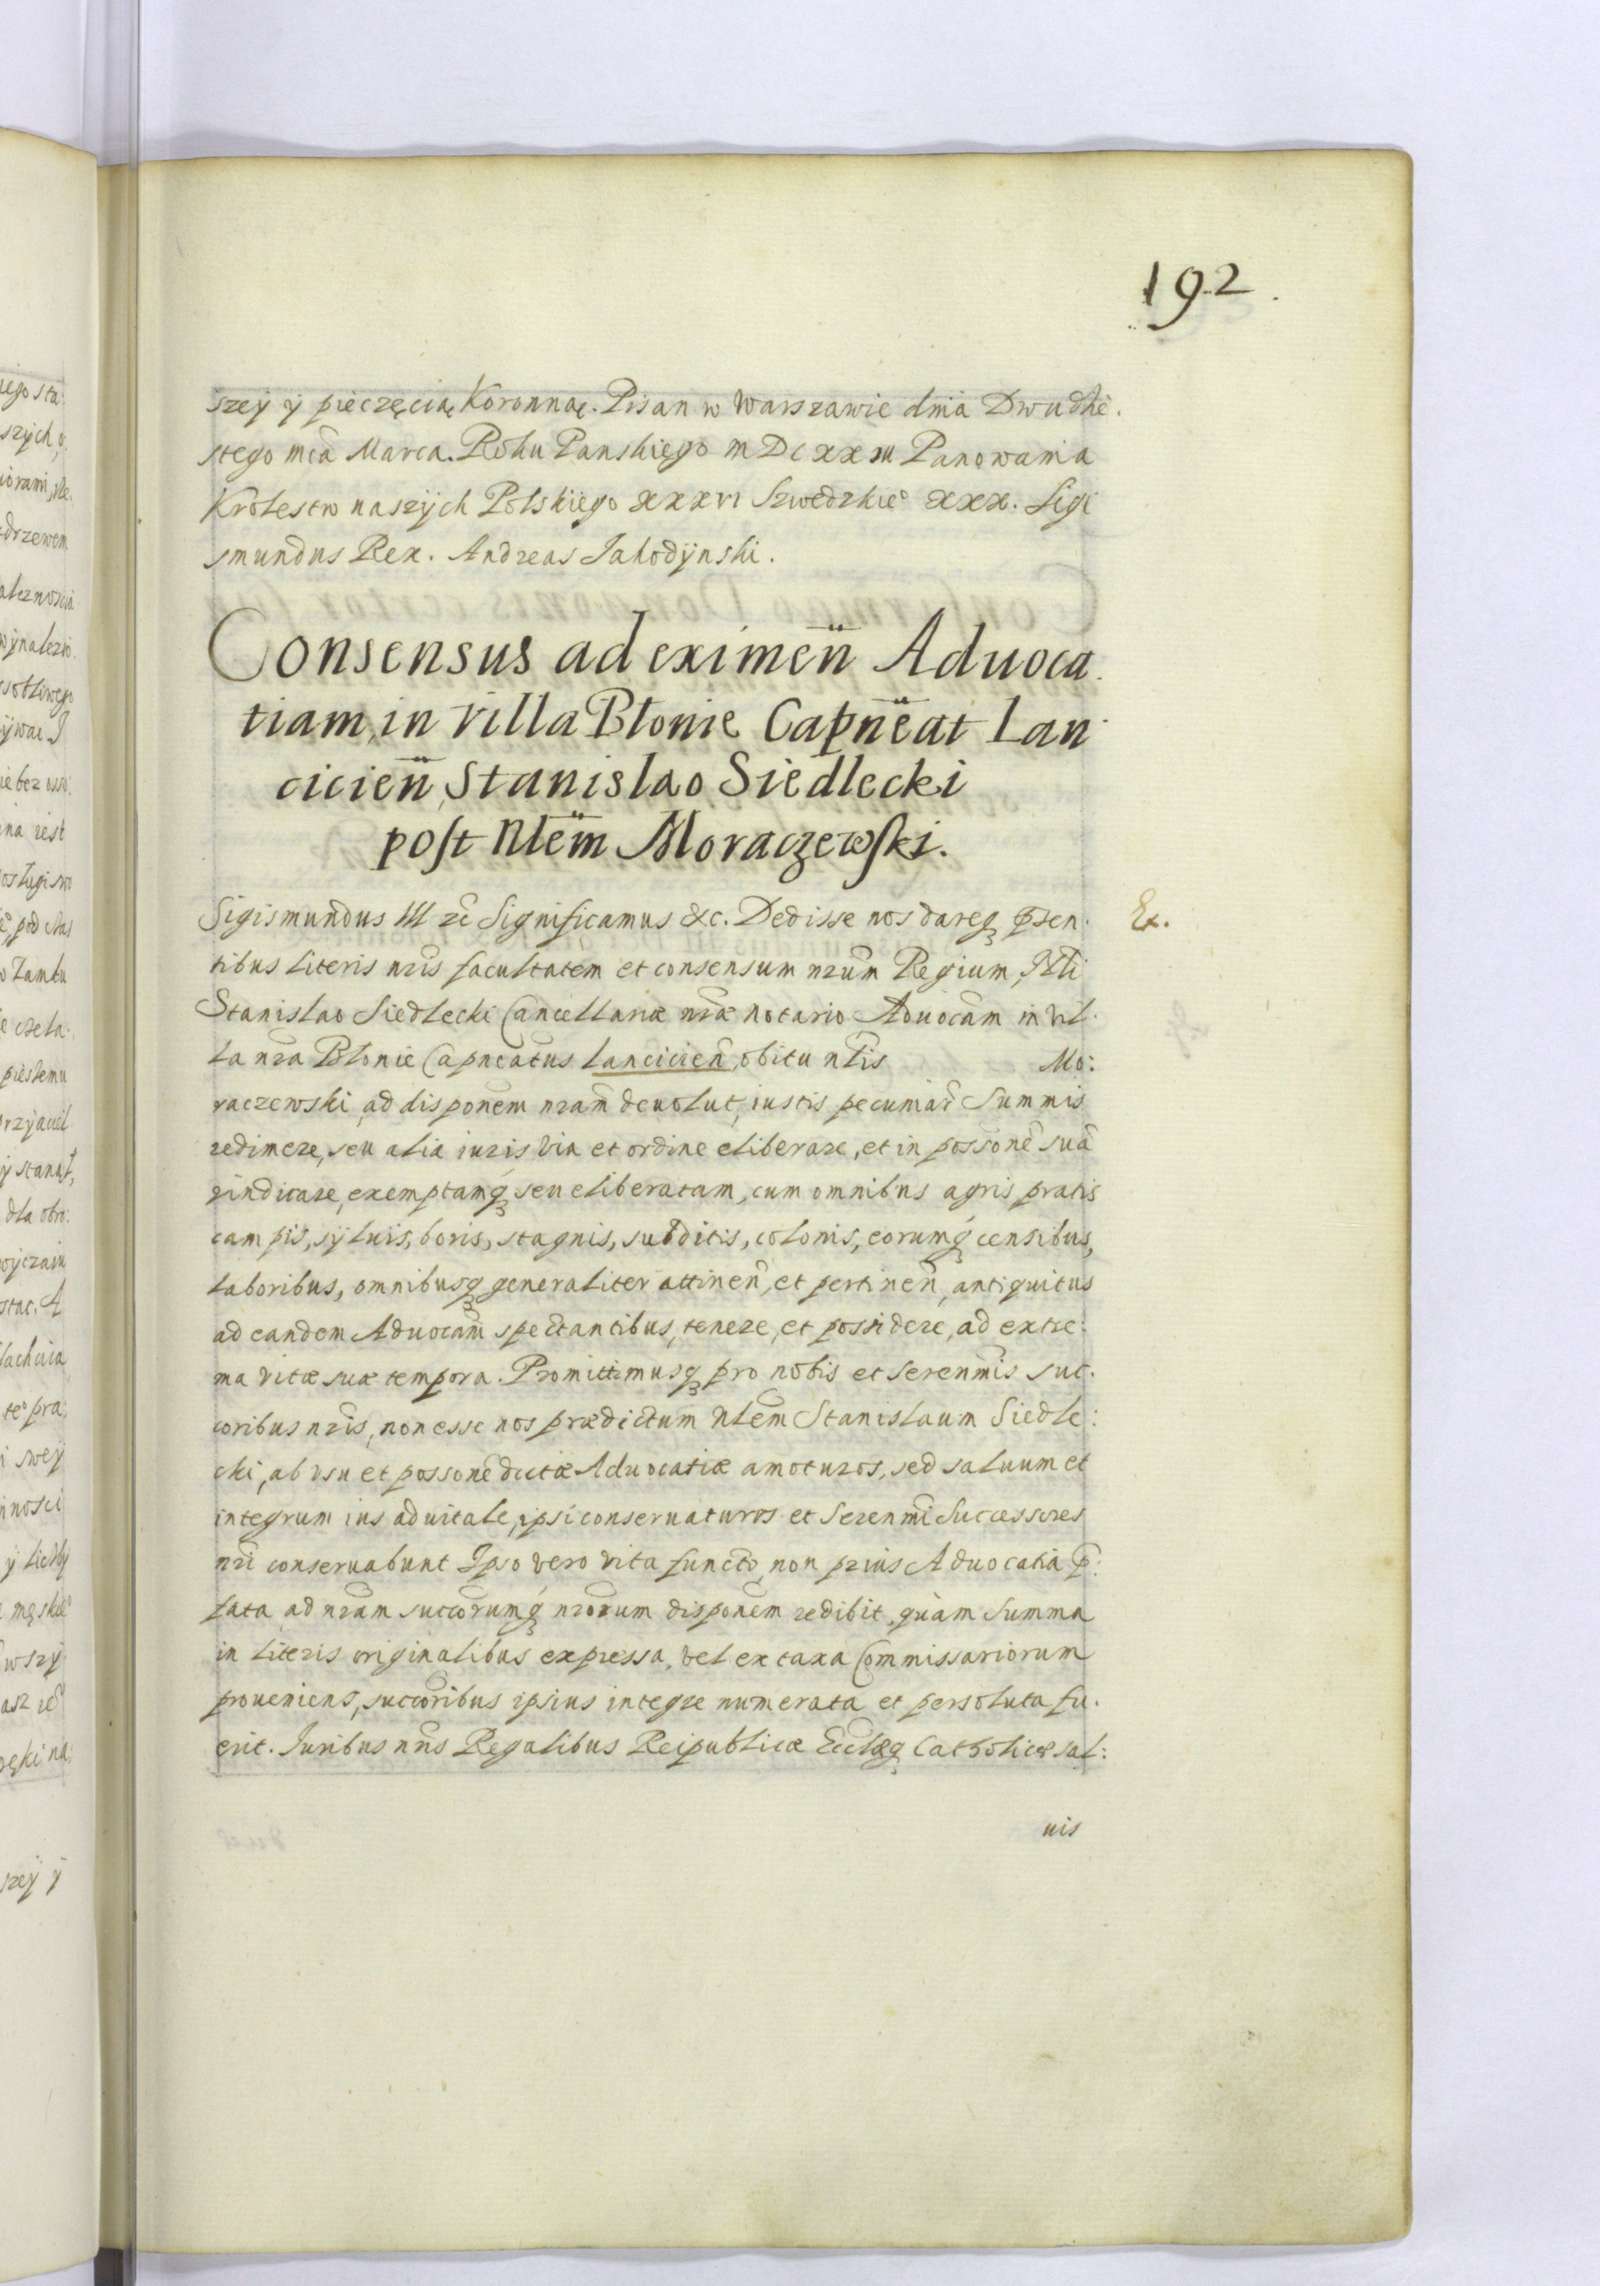 192.
szey y pieczęcią Koronną. Pisan w Warszawie dnia Dwudzie.
stego mcą Marca. Roku Panskiego MDCXXIII Panowania
Krolestw naszych Polskiego XXXVI Szwedzkie° XXX. Sigi
smundus Rex. Andreas Jakodynski.
Consensus ad eximen̄ Aduoca.
tiam, in villa Błonie Capn̄eat Lan
cicien̄, Stanislao Siedlecki
post Nlēm Moraczewski.
Sigismundus III zc̄ Significamus &c. Dedisse nos dareq p̄sen.
Ex.
tibus literis nr̄is facultatem et consensum nr̄um Regium, Nl̄i
Stanislao Siedlecki Cancellariæ nr̄æ Notario Aduocām in vil.
la nr̄a Błonie Capneātus Lancicien̄, obitu nl̄is Mo:
raczewski, ad disponem̄ nram̄ deuolut, iustis pecuniar̄ Summis
redimere, seu alia iuris via et ordine eliberare, et in possonē suā
vindicare, exemptamq́ seu eliberatam, cum omnibus agris pratis
campis, syluis, boris, stagnis, subditis, colonis, eorumq́ censibus,
laboribus, omnibusq generaliter attinen̄, et pertinen̄, antiquitus
ad eandem Aduocām spectantibus, tenere, et possidere, ad extre:
ma vitæ suæ tempora. Promittimusq pro nobis et Serenm̄is suc.
coribus nr̄is, non esse nos prædictum Nlēm Stanislaum Siedle:
cki, ab vsu et possonē dictæ Aduocatiæ amoturos, sed saluum et
integrum ius aduitale, ipsi conseruaturos et Serenm̄i Successores
nr̄i conseruabunt Ipso vero vita functo, non prius Aduocatia p̄:
fata, ad nr̄am succorumq́ nrorum disponēm redibit, quàm Summa
in literis originalibus expressa, vel ex taxa Commissariorum
proueniens, succoribus ipsius integre numerata et persoluta fu.
erit. Iuribus nr̄is Regalibus Reipublicæ Eccl̄æq Catholicæ sal:
uis